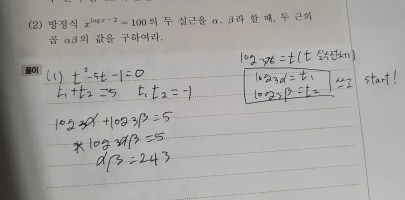 (2) 방정식 x^{log x-2}=100의 두 실근을 α, β라 할 때, 두 근의
곱 αβ의 값을 구하여라.
풀이
(1) t²-5t-1=0
t₁+t₂=5 t₁t₂=-1
log₃α+log₃β=5
log₃αβ=5
αβ=243
log₃x=t (t
log₃α=t₁
log₃β=t₂
쓰고 start!